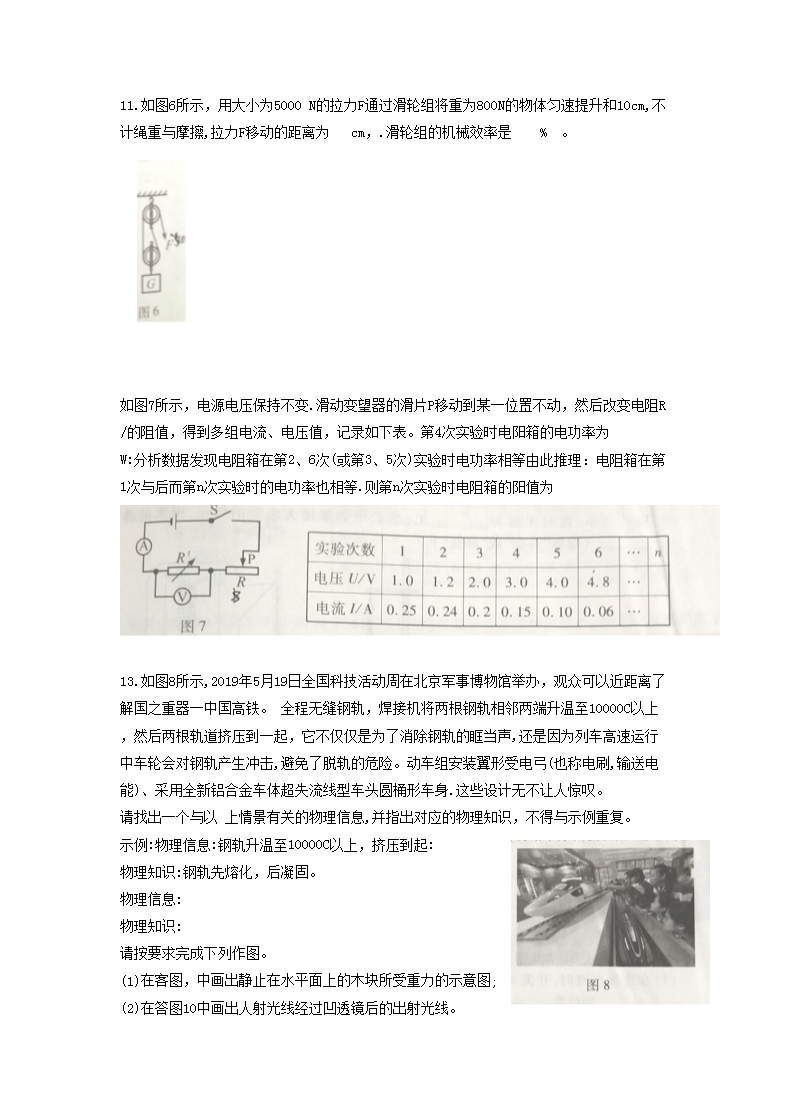 11.如图6所示，用大小为5000 N的拉力F通过滑轮组将重为800N的物体匀速提升和10cm,不
计绳重与摩擦,拉力F移动的距离为 cm，.滑轮组的机械效率是 % 。
F
G
图6
如图7所示，电源电压保持不变.滑动变望器的滑片P移动到某一位置不动，然后改变电阻R
/的阻值，得到多组电流、电压值，记录如下表。第4次实验时电阳箱的电功率为
W:分析数据发现电阻箱在第2、6次(或第3、5次)实验时电功率相等由此推理：电阻箱在第
1次与后而第n次实验时的电功率也相等.则第n次实验时电阻箱的阳值为
S
A
R'
P
R
V
图7
实验次数 1 2 3 4 5 6 … n
电压U/V 1.0 1.2 2.0 3.0 4.0 4.8 …
电流I/A 0.25 0.24 0.2 0.15 0.10 0.06 …
13.如图8所示,2019年5月19日全国科技活动周在北京军事博物馆举办，观众可以近距离了
解国之重器一中国高铁。 全程无缝钢轨，焊接机将两根钢轨相邻两端升温至10000C以上
，然后两根轨道挤压到一起，它不仅仅是为了消除钢轨的眶当声,还是因为列车高速运行
中车轮会对钢轨产生冲击,避免了脱轨的危险。动车组安装翼形受电弓(也称电刷,输送电
能)、采用全新铝合金车体超失流线型车头圆桶形车身.这些设计无不让人惊叹。
请找出一个与以 上情景有关的物理信息,并指出对应的物理知识，不得与示例重复。
示例:物理信息:钢轨升温至10000C以上，挤压到起:
物理知识:钢轨先熔化，后凝固。
物理信息:
物理知识:
请按要求完成下列作图。
(1)在客图，中画出静止在水平面上的木块所受重力的示意图;
(2)在答图10中画出人射光线经过凹透镜后的出射光线。
图8